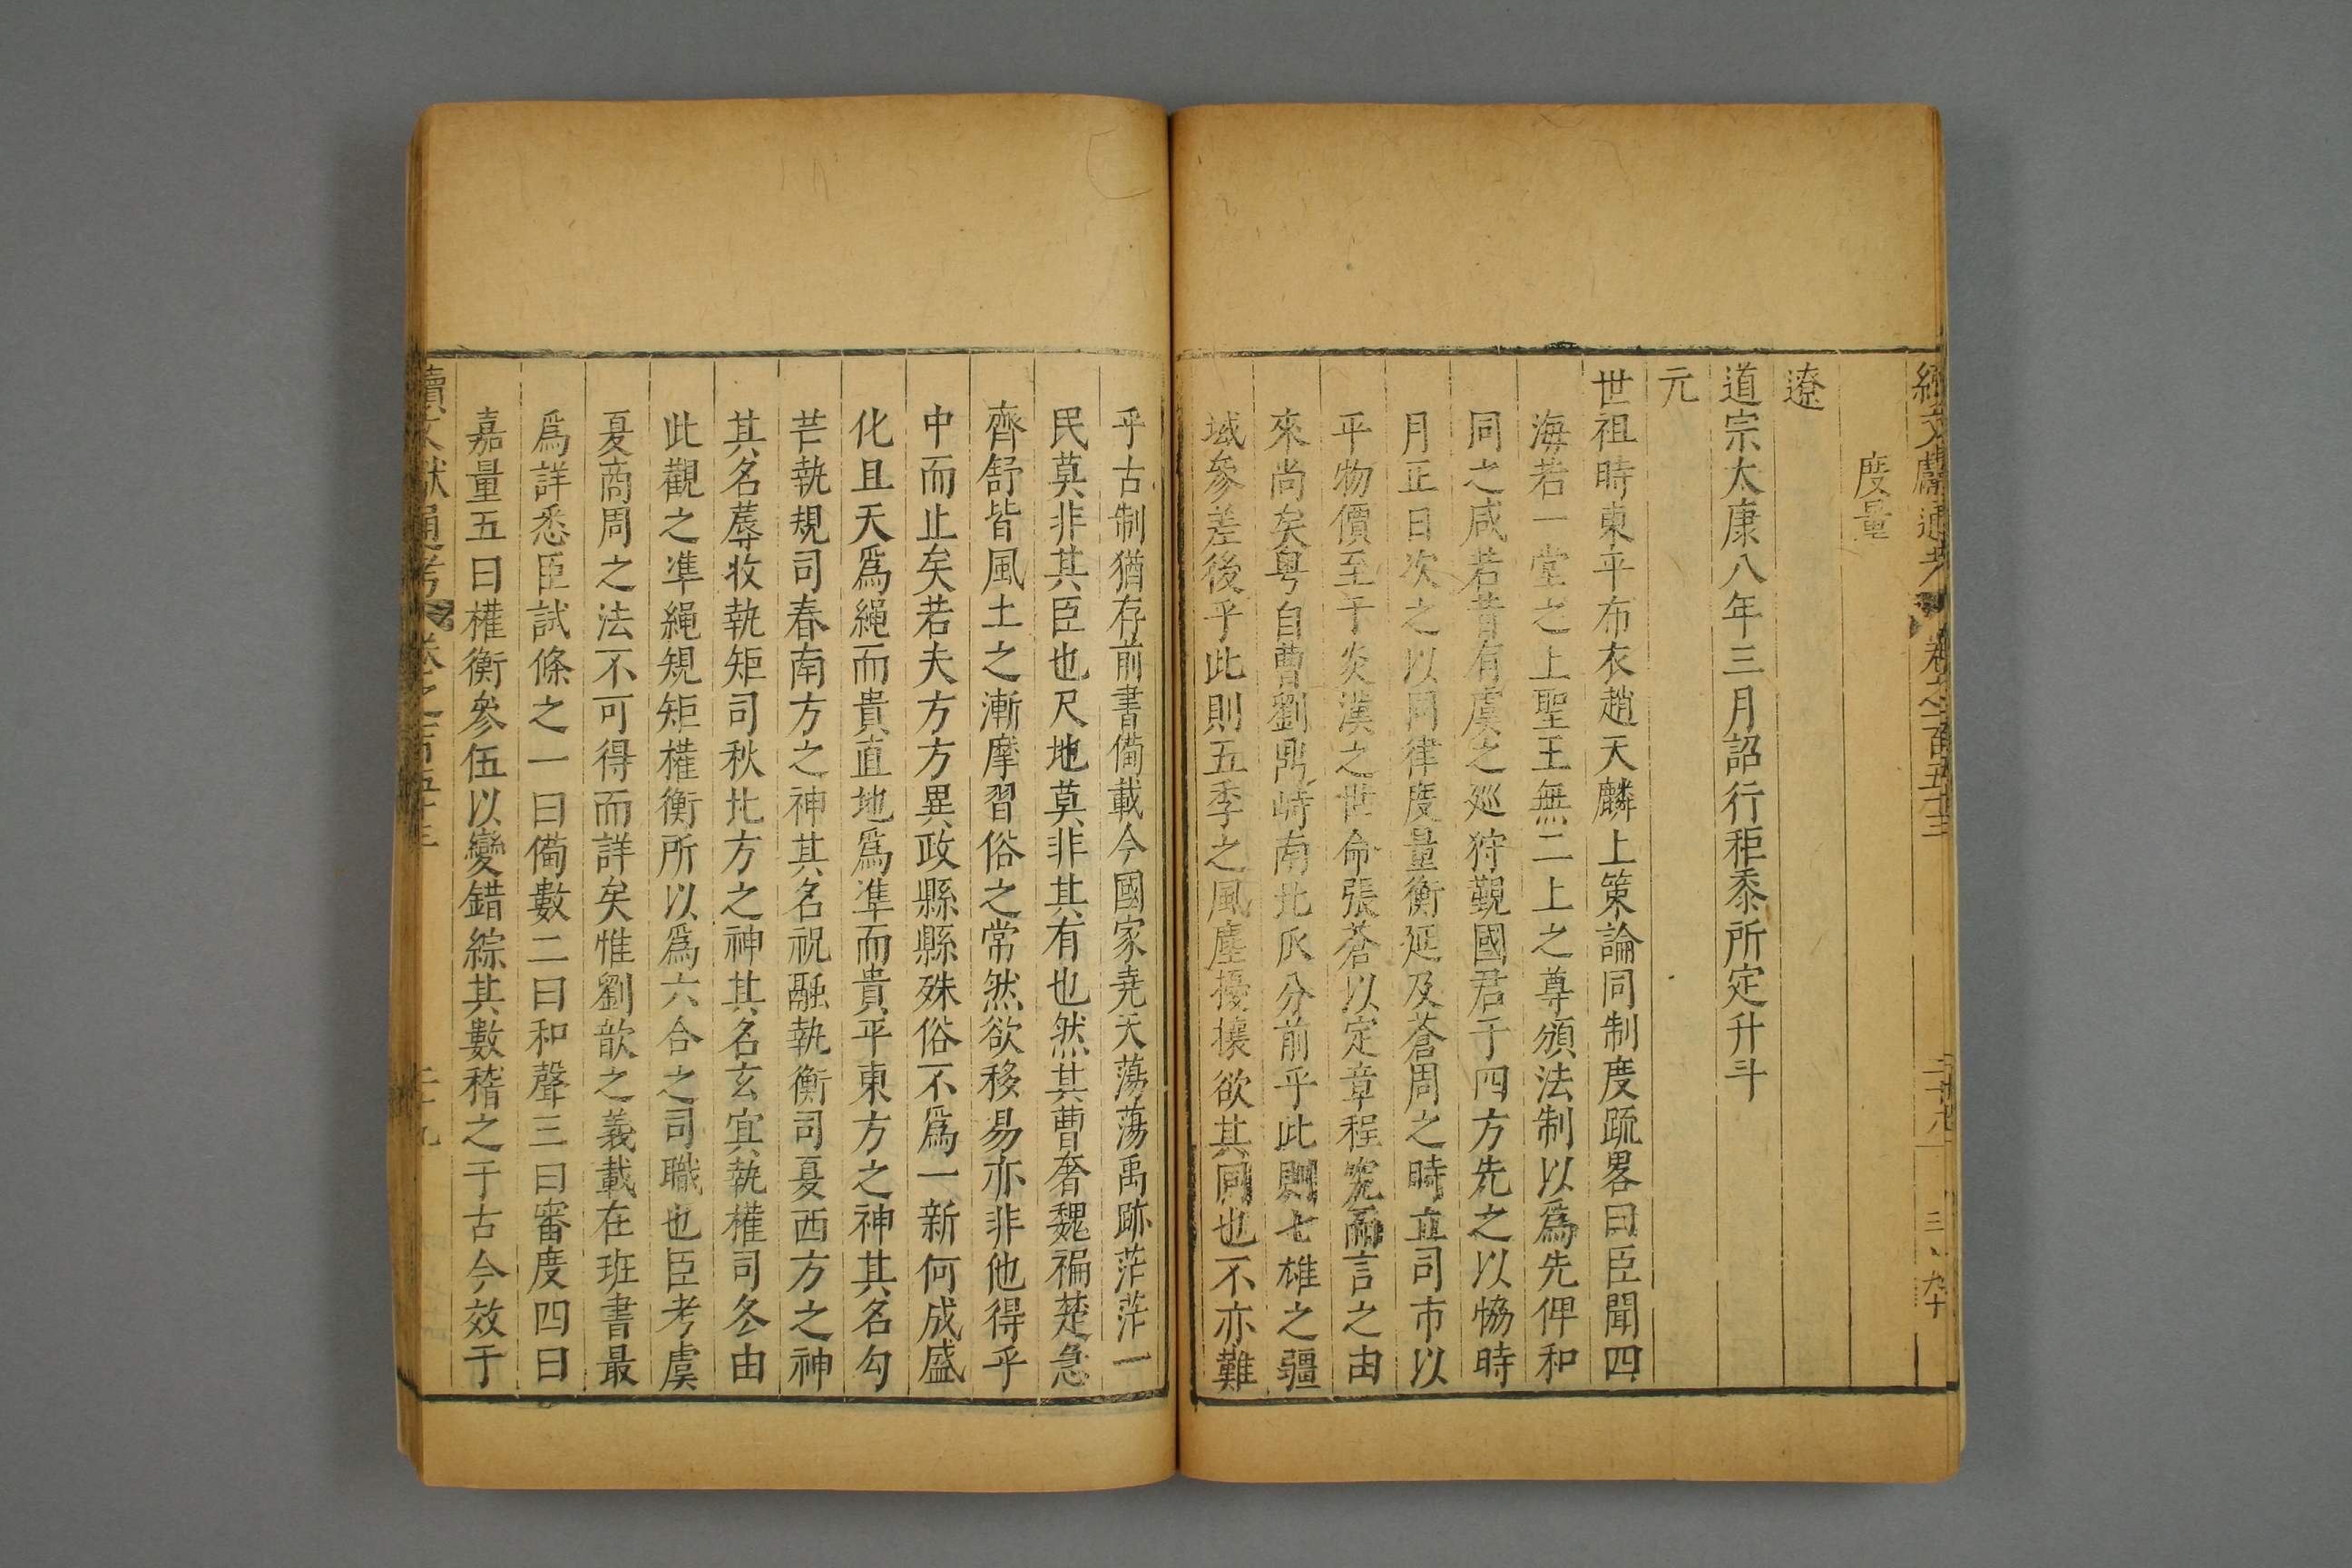 度量
遼
道宗太康八年三月詔行秬黍所定升斗
元
世祖時東平布衣趙天麟上策論同制度疏畧曰臣聞四
海若一堂之上聖王無二上之尊頒法制以爲先俾和
同之咸若昔有虞之廵狩覲國君于四方先之以恊時
月正日次之以同律度量衡延及蒼周之時立司市以
平物價至于炎漢之世命張蒼以定章程究而言之由
來尚矣粤自曹劉鼎峙南北瓜分前乎此則七雄之疆
域參差後乎此則五季之風塵擾攘欲其同也不亦難
乎古制猶存前書備載今國家堯天蕩蕩禹跡茫茫一
民莫非其臣也尺地莫非其有也然其曹奢魏褊楚急
齊舒皆風土之漸摩習俗之常然欲移易亦非他得乎
中而止矣若夫方方異政縣縣殊俗不爲一新何成盛
化且天爲繩而貴直地爲凖而貴平東方之神其名勾
芒執規司春南方之神其名祝融執衡司夏西方之神
其名蓐收執矩司秋北方之神其名玄冥執權司冬由
此觀之凖繩規矩權衡所以爲六合之司職也臣考虞
夏商周之法不可得而詳矣惟劉歆之義載在班書最
爲詳悉臣試條之一曰備數二曰和聲三曰審度四曰
嘉量五曰權衡參伍以變錯綜其數稽之于古今效于
續文獻通考 卷之一百五十三